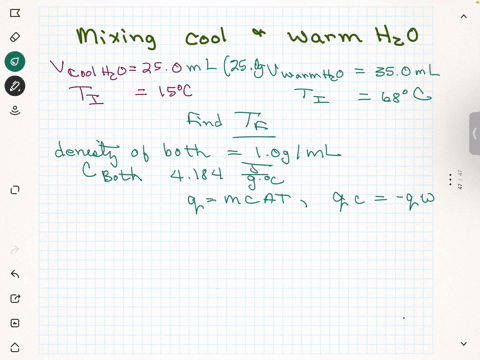 Mixing cool & warm H2O
V cool H2O = 25.0 mL (25.0g V warm H2O = 35.0 mL
TI = 15°C TI = 68°C
Find TF
density of both = 1.0g/mL
C Both 4.184 J/g·°C
q = mCΔT, qc = -qw
47 / 47